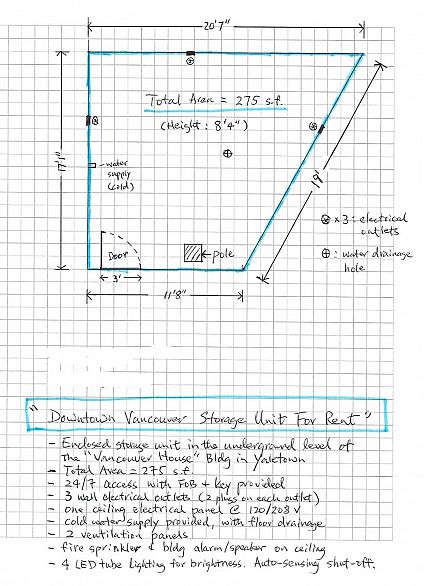 20'7"
Total Area = 275 s.f.
(Height: 8'4")
17'1"
water
supply
(cold)
19'
⊗ x 3: electrical
outlets
⊕: water drainage
hole
Door
pole
3'
11'8"
"Downtown Vancouver Storage Unit For Rent"
- Enclosed storage unit in the underground level of
the "Vancouver House" Bldg in Yaletown
- Total Area = 275 s.f.
- 24/7 access with FOB + key provided
- 3 wall electrical outlets (2 plugs on each outlet)
- one ceiling electrical panel @ 120/208 V
- cold water supply provided, with floor drainage
- 2 ventilation panels
- fire sprinkler + bldg alarm/speaker on ceiling
- 4 LED tube lighting for brightness. Auto-sensing shut-off.